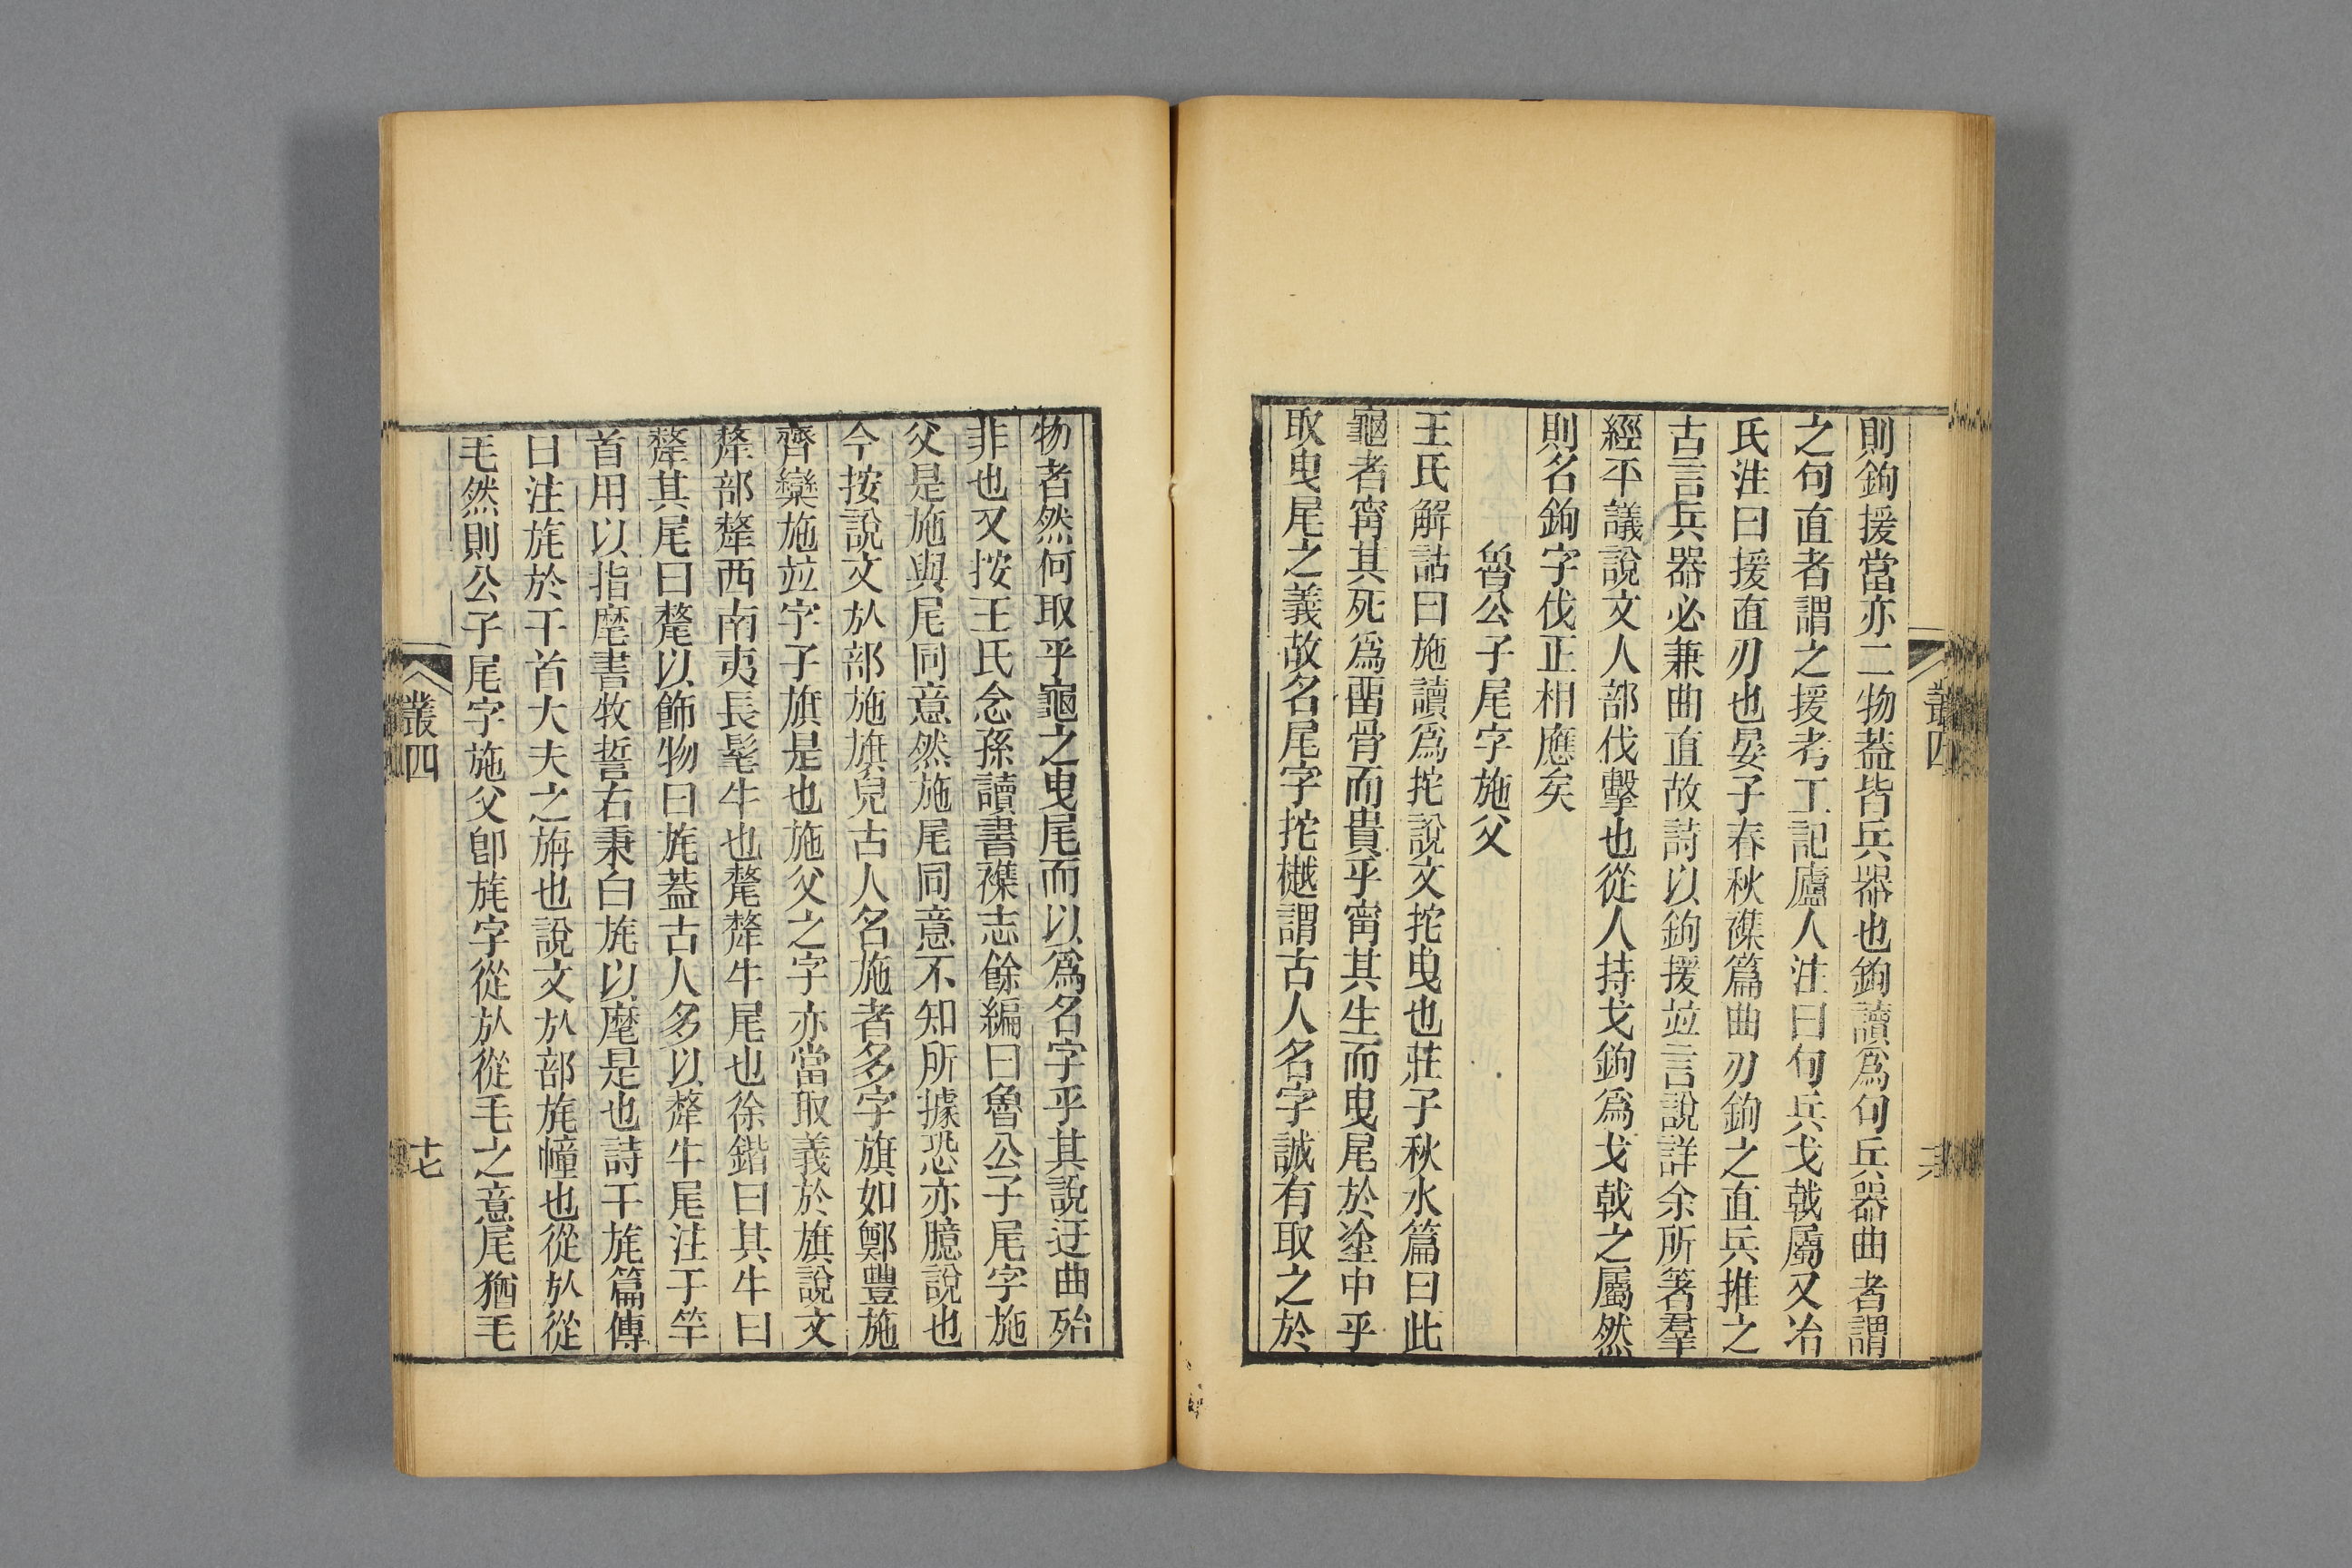 則鉤援當亦二物葢皆兵器也鉤讀爲句兵器曲者謂
之句直者謂之援考工記廬人注曰句兵戈戟屬又冶
氏注曰援直刃也晏子春秋襍篇曲刃鉤之直兵推之
古言兵器必兼曲直故詩以鉤援竝言說詳余所箸羣
經平議說文人部伐擊也從人持戈鉤爲戈戟之屬然
則名鉤字伐正相應矣
魯公子尾字施父
王氏解詁曰施讀爲拕說文拕曳也莊子秋水篇曰此
龜者甯其死爲畱骨而貴乎甯其生而曳尾於塗中乎
取曳尾之義故名尾字拕樾謂古人名字誠有取之於
叢四
十六
物者然何取乎龜之曳尾而以爲名字乎其說迂曲殆
非也又按王氏念孫讀書襍志餘編曰魯公子尾字施
父是施與尾同意然施尾同意不知所據恐亦臆說也
今按說文㫃部施旗皃古人名施者多字旗如鄭豐施
齊欒施竝字子旗是也施父之字亦當取義於旗說文
犛部犛西南夷長髦牛也氂犛牛尾也徐鍇曰其牛曰
犛其尾曰氂以飾物曰旄葢古人多以犛牛尾注于竿
首用以指麾書牧誓右秉白旄以麾是也詩干旄篇傳
曰注旄於干首大夫之旃也說文㫃部旄幢也從㫃從
毛然則公子尾字施父卽旄字從㫃從毛之意尾猶毛
叢四
十七